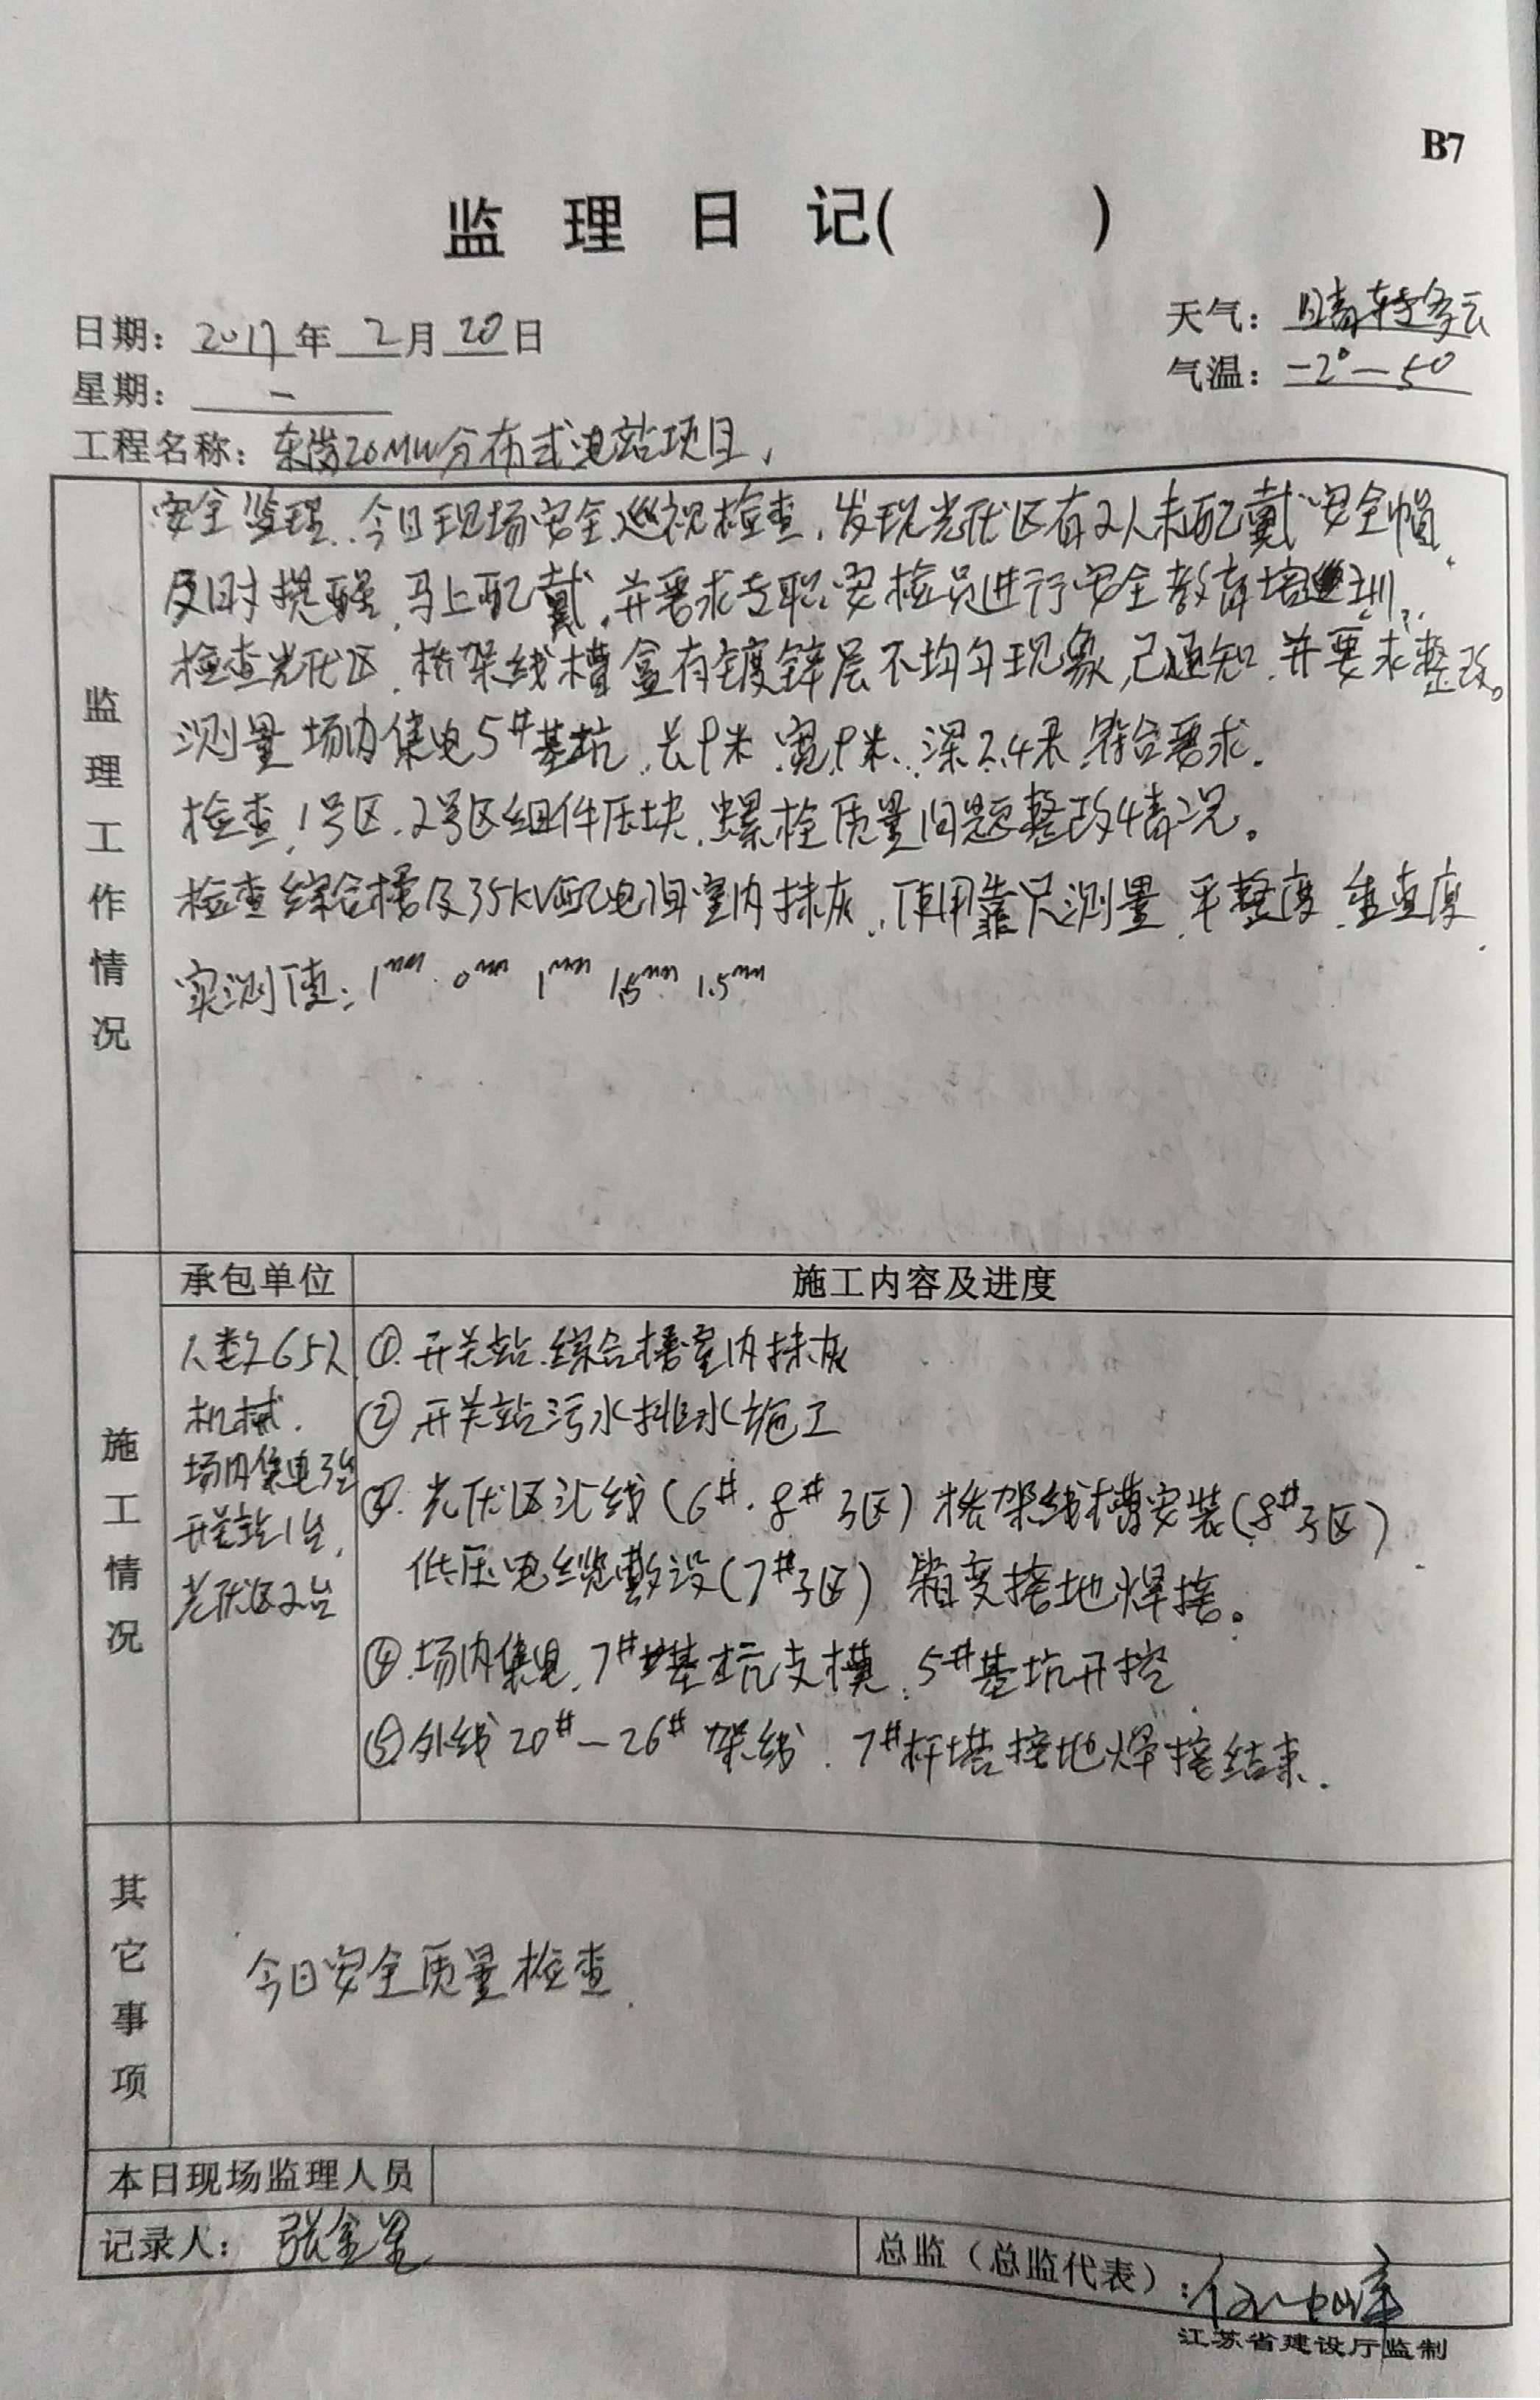 B7
监理日记(    )
日期：2017年2月20日
天气：晴转多云
星期：一
气温：-2°—5°
工程名称：东岗20MW分布式电站项目，
监理工作情况
安全监理、今日现场安全巡视检查，发现光伏区有2人未配戴安全帽，
及时提醒，马上配戴，并要求专职安检员进行安全教育培训，
检查光伏区，桥架线槽盒有镀锌层不均匀现象，已通知，并要求整改。
测量场内集电5#基坑，长9米，宽9米，深2.4米，符合要求。
检查，1号区、2号区组件压块，螺栓质量问题整改情况。
检查综合楼及35KV配电间室内抹灰，使用靠尺测量，平整度，垂直度，
实测值：1mm 0mm 1mm 1.5mm 1.5mm
施工情况
承包单位
施工内容及进度
人数65人
机械.
场内集电3台
开关站1台，
光伏区2台
①开关站、综合楼室内抹灰
②开关站污水排水施工
③光伏区汇线（6#、8#子区）桥架线槽安装（8#子区）
低压电缆敷设（7#子区）箱变接地焊接。
④场内集电，7#基坑支模，5#基坑开挖
⑤外线20#—26#架线，7#杆塔接地焊接结束.
其它事项
今日安全质量检查
本日现场监理人员
记录人：张金
总监（总监代表）：
江苏省建设厅监制